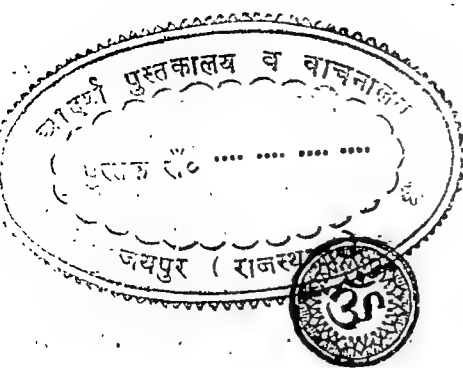 आदर्श पुस्तकालय व वाचनालय
पुस्तक सं० .... .... .... ....
जयपुर ( राजस्थान )
ॐ